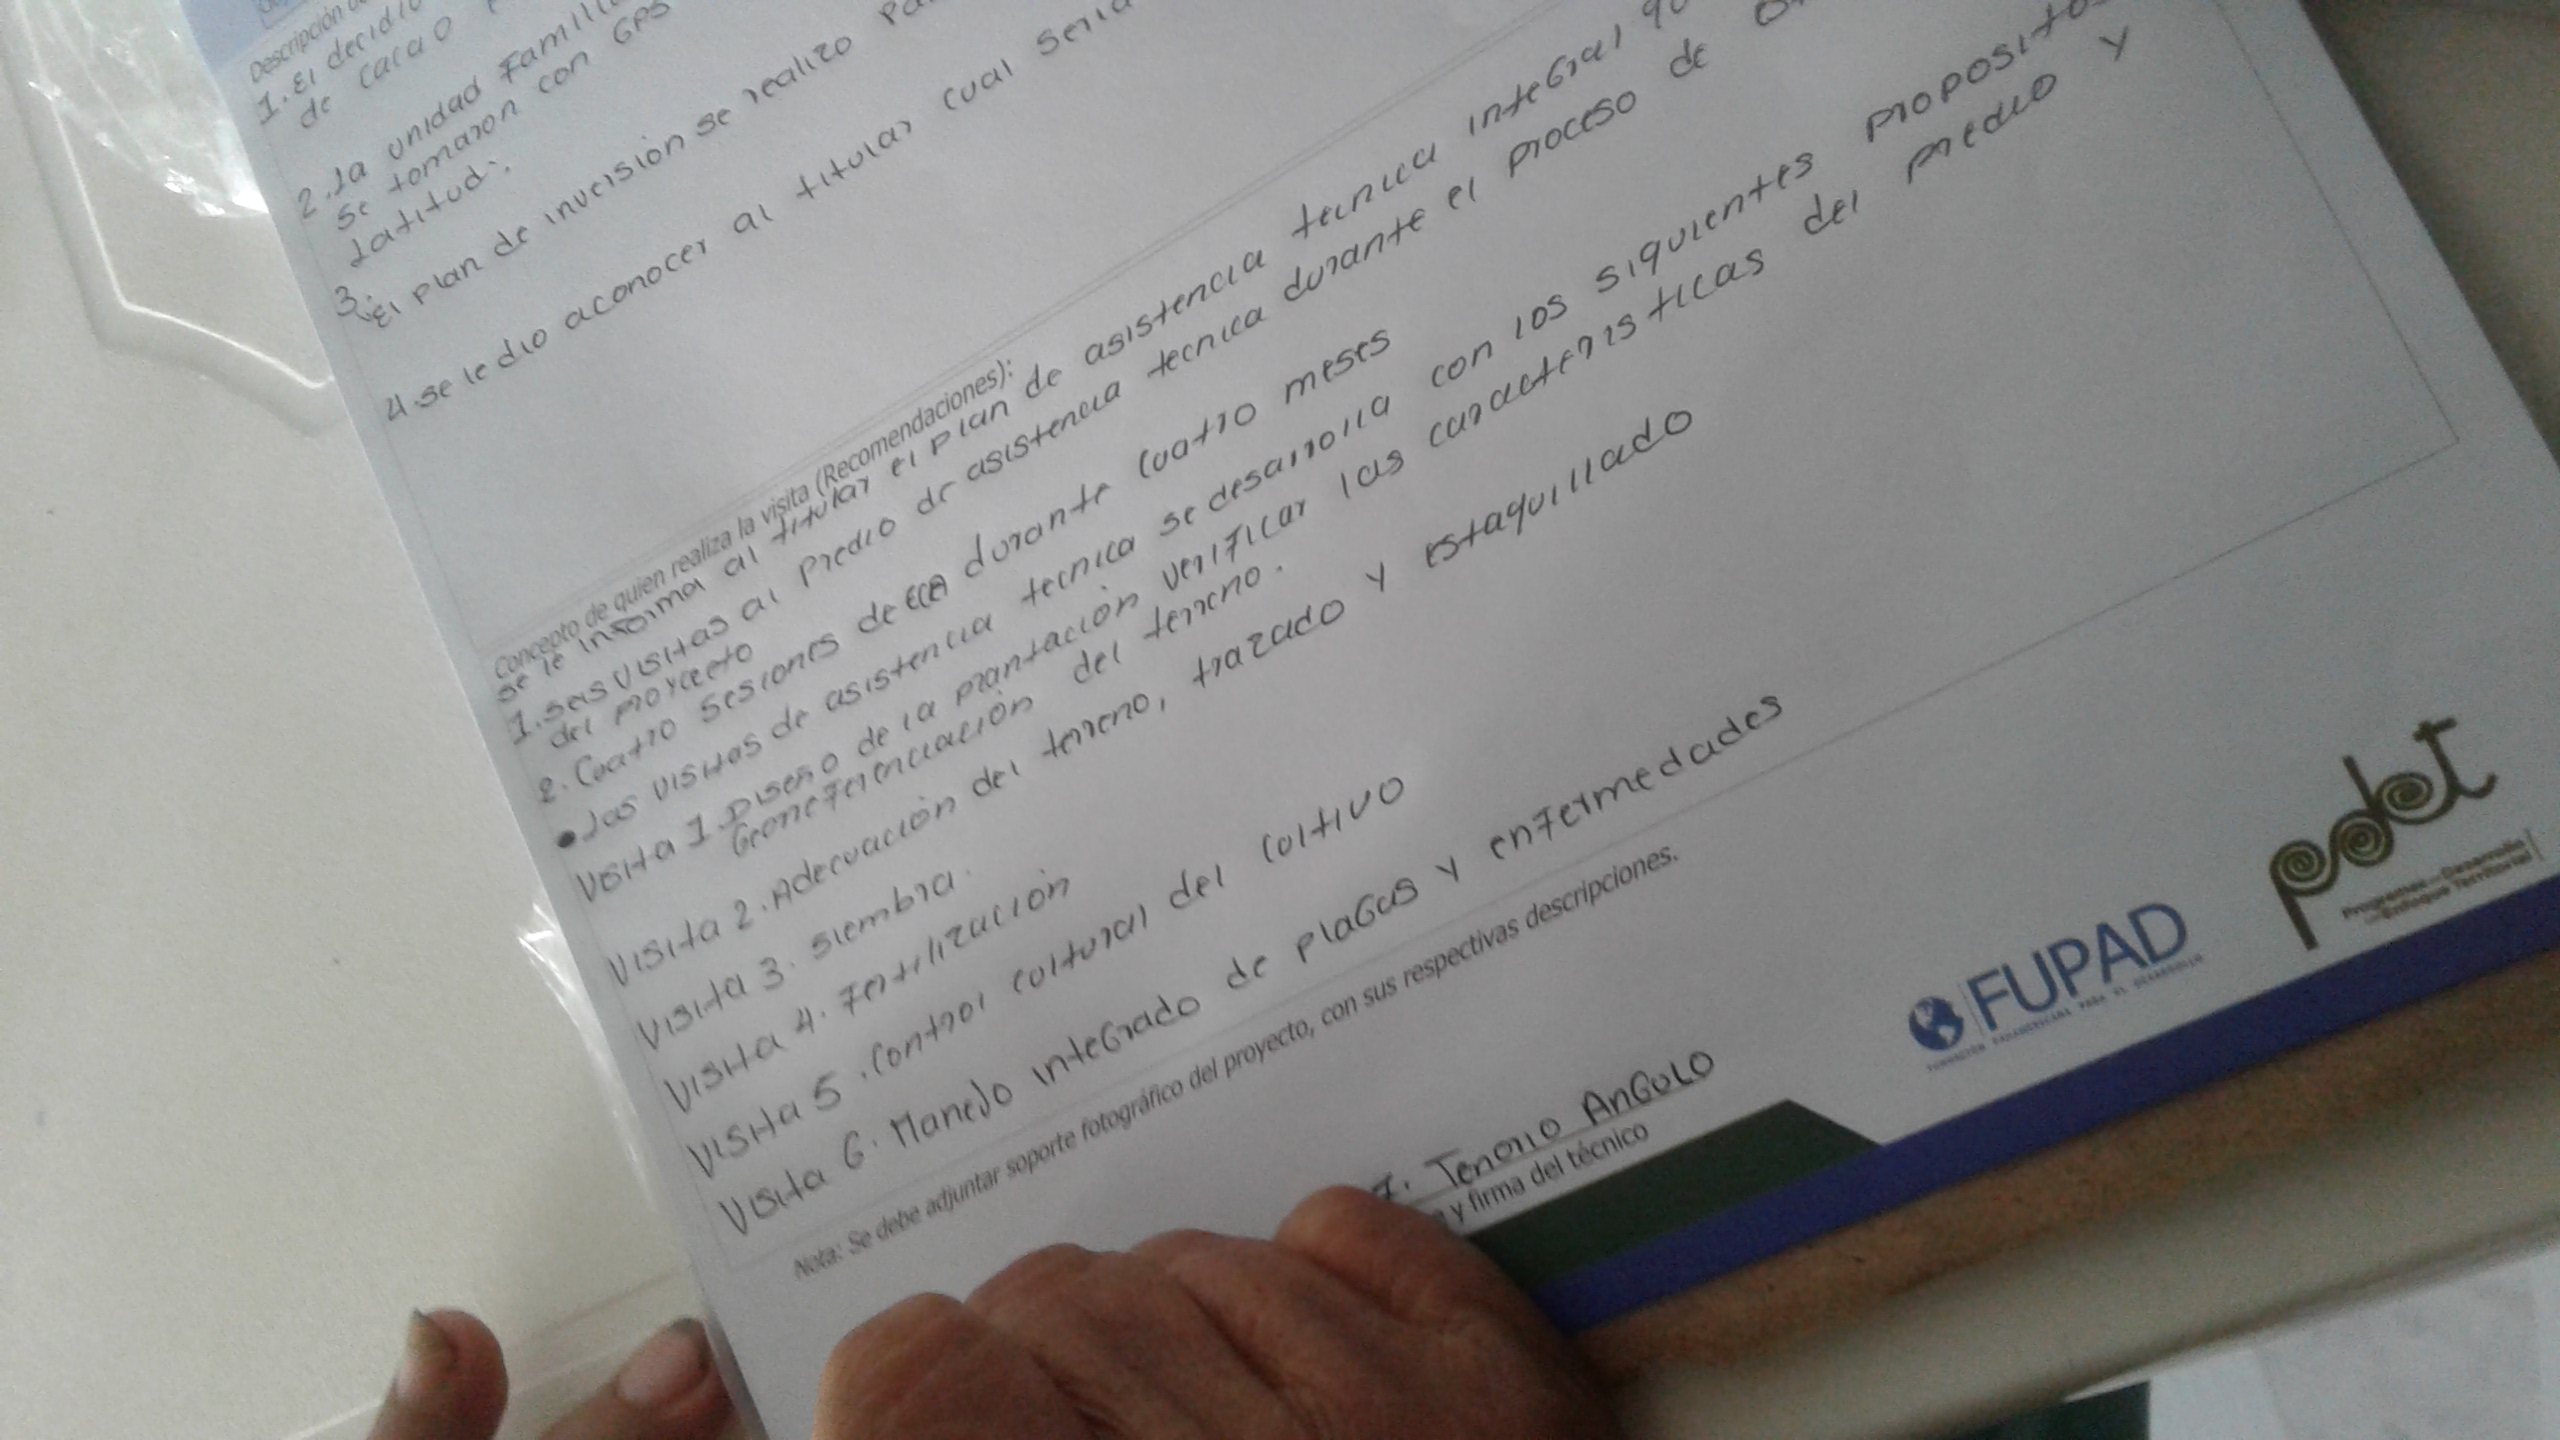 Descripción
1. El decidio
de cacao
2. La unidad Famili
se tomaron con GPS
Latitud:
3.
El plan de inversión se realizo
4. se le dio aconocer al titular cual seria
Concepto de quien realiza la visita (Recomendaciones):
se le informa al titular el plan de asistencia tecnica inteGral
1. seis visitas al predio de asistencia tecnica durante el proceso de
del proyecto
2. Cuatro sesiones de ECA durante cuatro meses
• Las visitas de asistencia tecnica se desarrolla con los siguientes propositos
Visita 1. Diseño de la plantación verificar las caracteristicas del predio y
Georeferenciación del terreno.
Visita 2. Adecuación del terreno, trazado y estaquillado
Visita 3. siembra.
Visita 4. Fertilización
Visita 5. Control cultural del cultivo
Visita 6. Manejo inteGrado de plaGas y enfermedades
Nota: Se debe adjuntar soporte fotográfico del proyecto, con sus respectivas descripciones.
Tenorio AnGulo
y firma del técnico
FUPAD
FUNDACIÓN PANAMERICANA PARA EL DESARROLLO
pdet
Programas de Desarrollo
con Enfoque Territorial